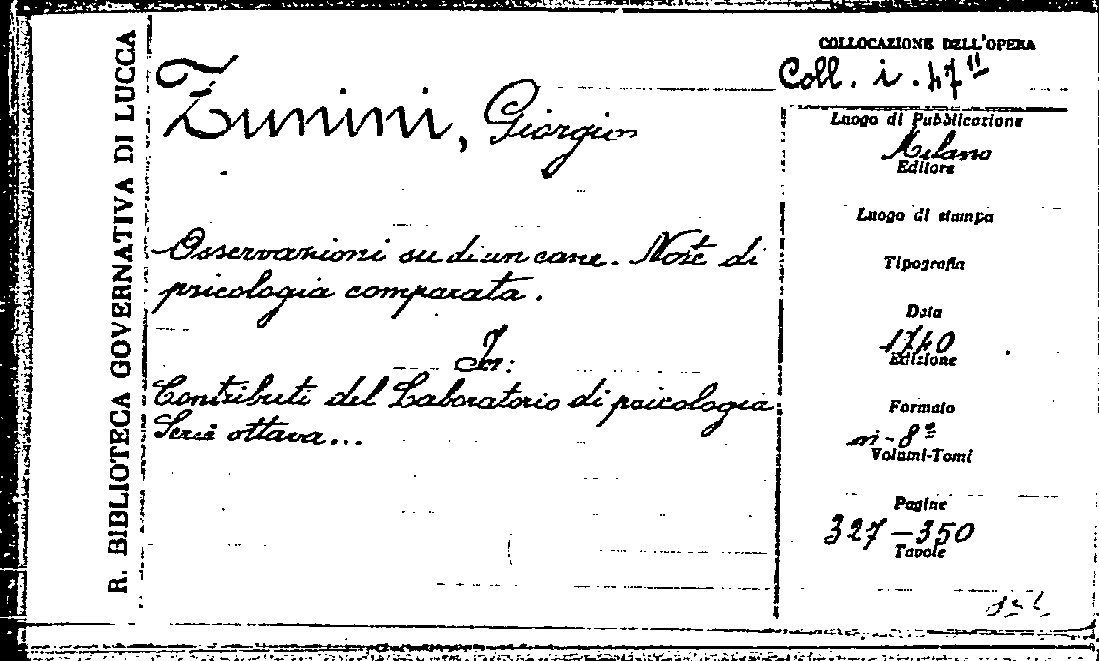 R. BIBLIOTECA GOVERNATIVA DI LUCCA
Zunini, Giorgio
Osservazioni su di un cane. Note di
psicologia comparata.
In:
Contributi del Laboratorio di psicologia
Serie ottava...
COLLOCAZIONE DELL'OPERA
Coll. i. 47"
Luogo di Pubblicazione
Milano
Editore
Luogo di stampa
Tipografia
Data
1940
Edizione
Formato
in-8º
Volumi-Tomi
Pagine
327-350
Tavole